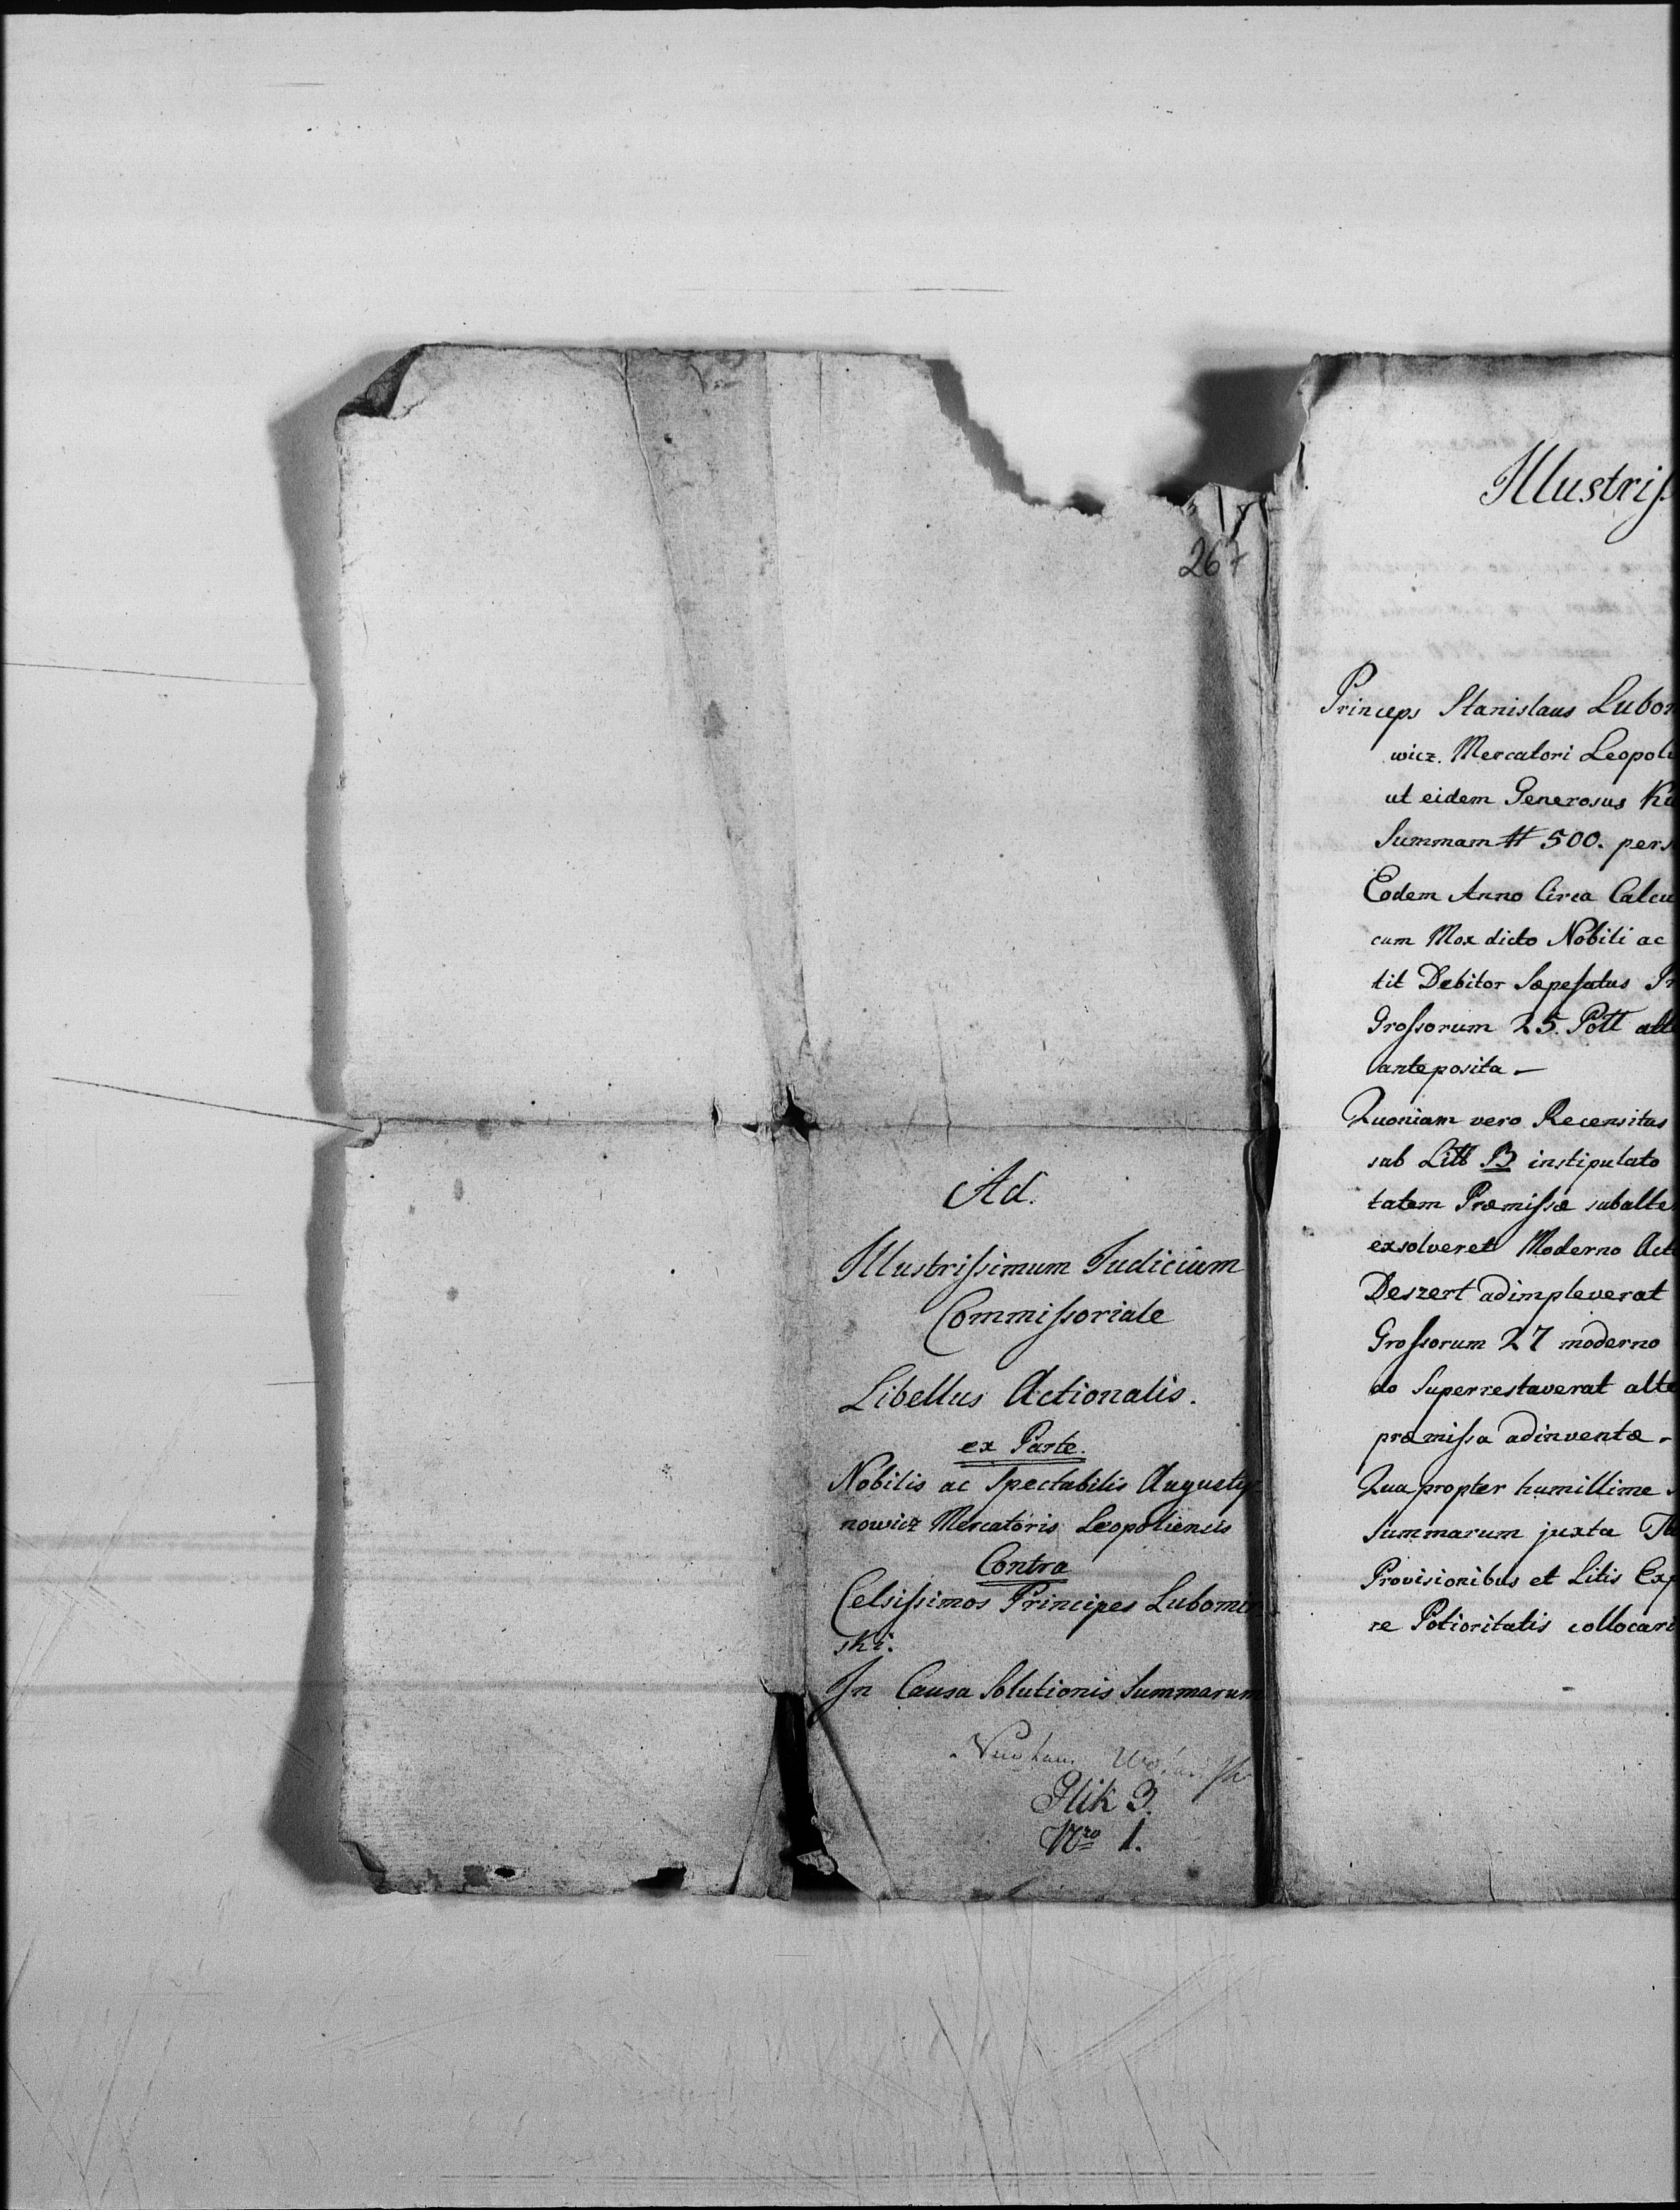 267
Ad.
Illustrissimum Judicium
Commissoriale
Libellus Actionalis.
ex Parte.
Nobilis ac Spectabilis Augusty-
nowicz Mercatoris Leopoliensis
Contra
Celsissimos Principes Lubomir
ski.
In Causa Solutionis Summarum
Plik 3.
Nro 1.
Illustris
Princeps Stanislaus Lubom
wicz. Mercatori Leopoli
ut eidem Generosus
Summam # 500. pers
Eodem Anno Circa Calcu
cum Mox dicto Nobili ac
tit Debitor Sæpefatus Pr
Grossorum 25. Poll alt
anteposita –
Quoniam vero Recensitus
sub Litt B instipulato
tatem Præmissæ subalte
exsolveret Moderno Act
Deszert adimpleverat
Grossorum 27 moderno
do Superrestaverat alte
præmissa adinventæ –
Quapropter humillime
Summarum juxta
Provisionibus et Litis Exp
re Potioritatis collocari